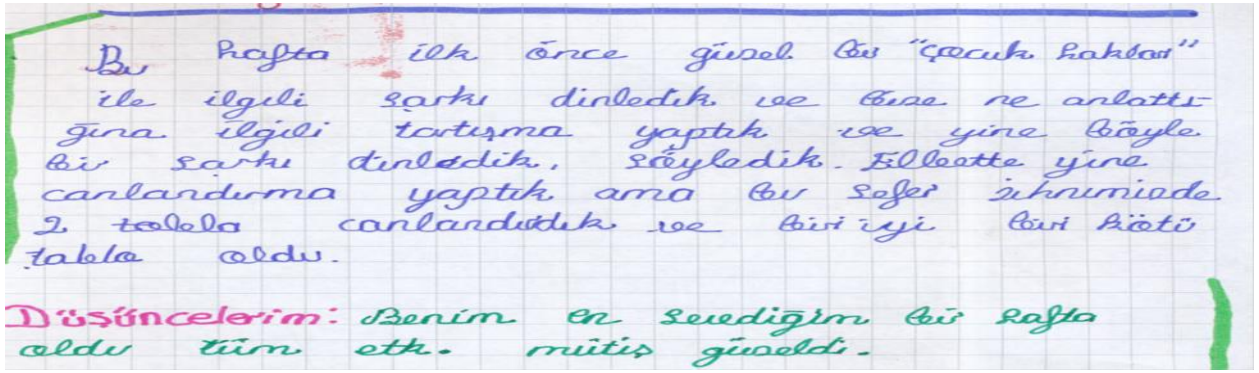 Bu hafta ilk önce güzel bir "çocuk hakları"
ile ilgili şarkı dinledik ve bize ne anlattı-
ğına ilgili tartışma yaptık ve yine böyle
bir şarkı dinledik, söyledik. Elbette yine
canlandırma yaptık ama bu sefer zihnimizde
2 tabla canlandırdık ve biri iyi biri kötü
tabla oldu.
Düşüncelerim: Benim en sevdiğim bir hafta
oldu tüm etk. mütiş güzeldi.